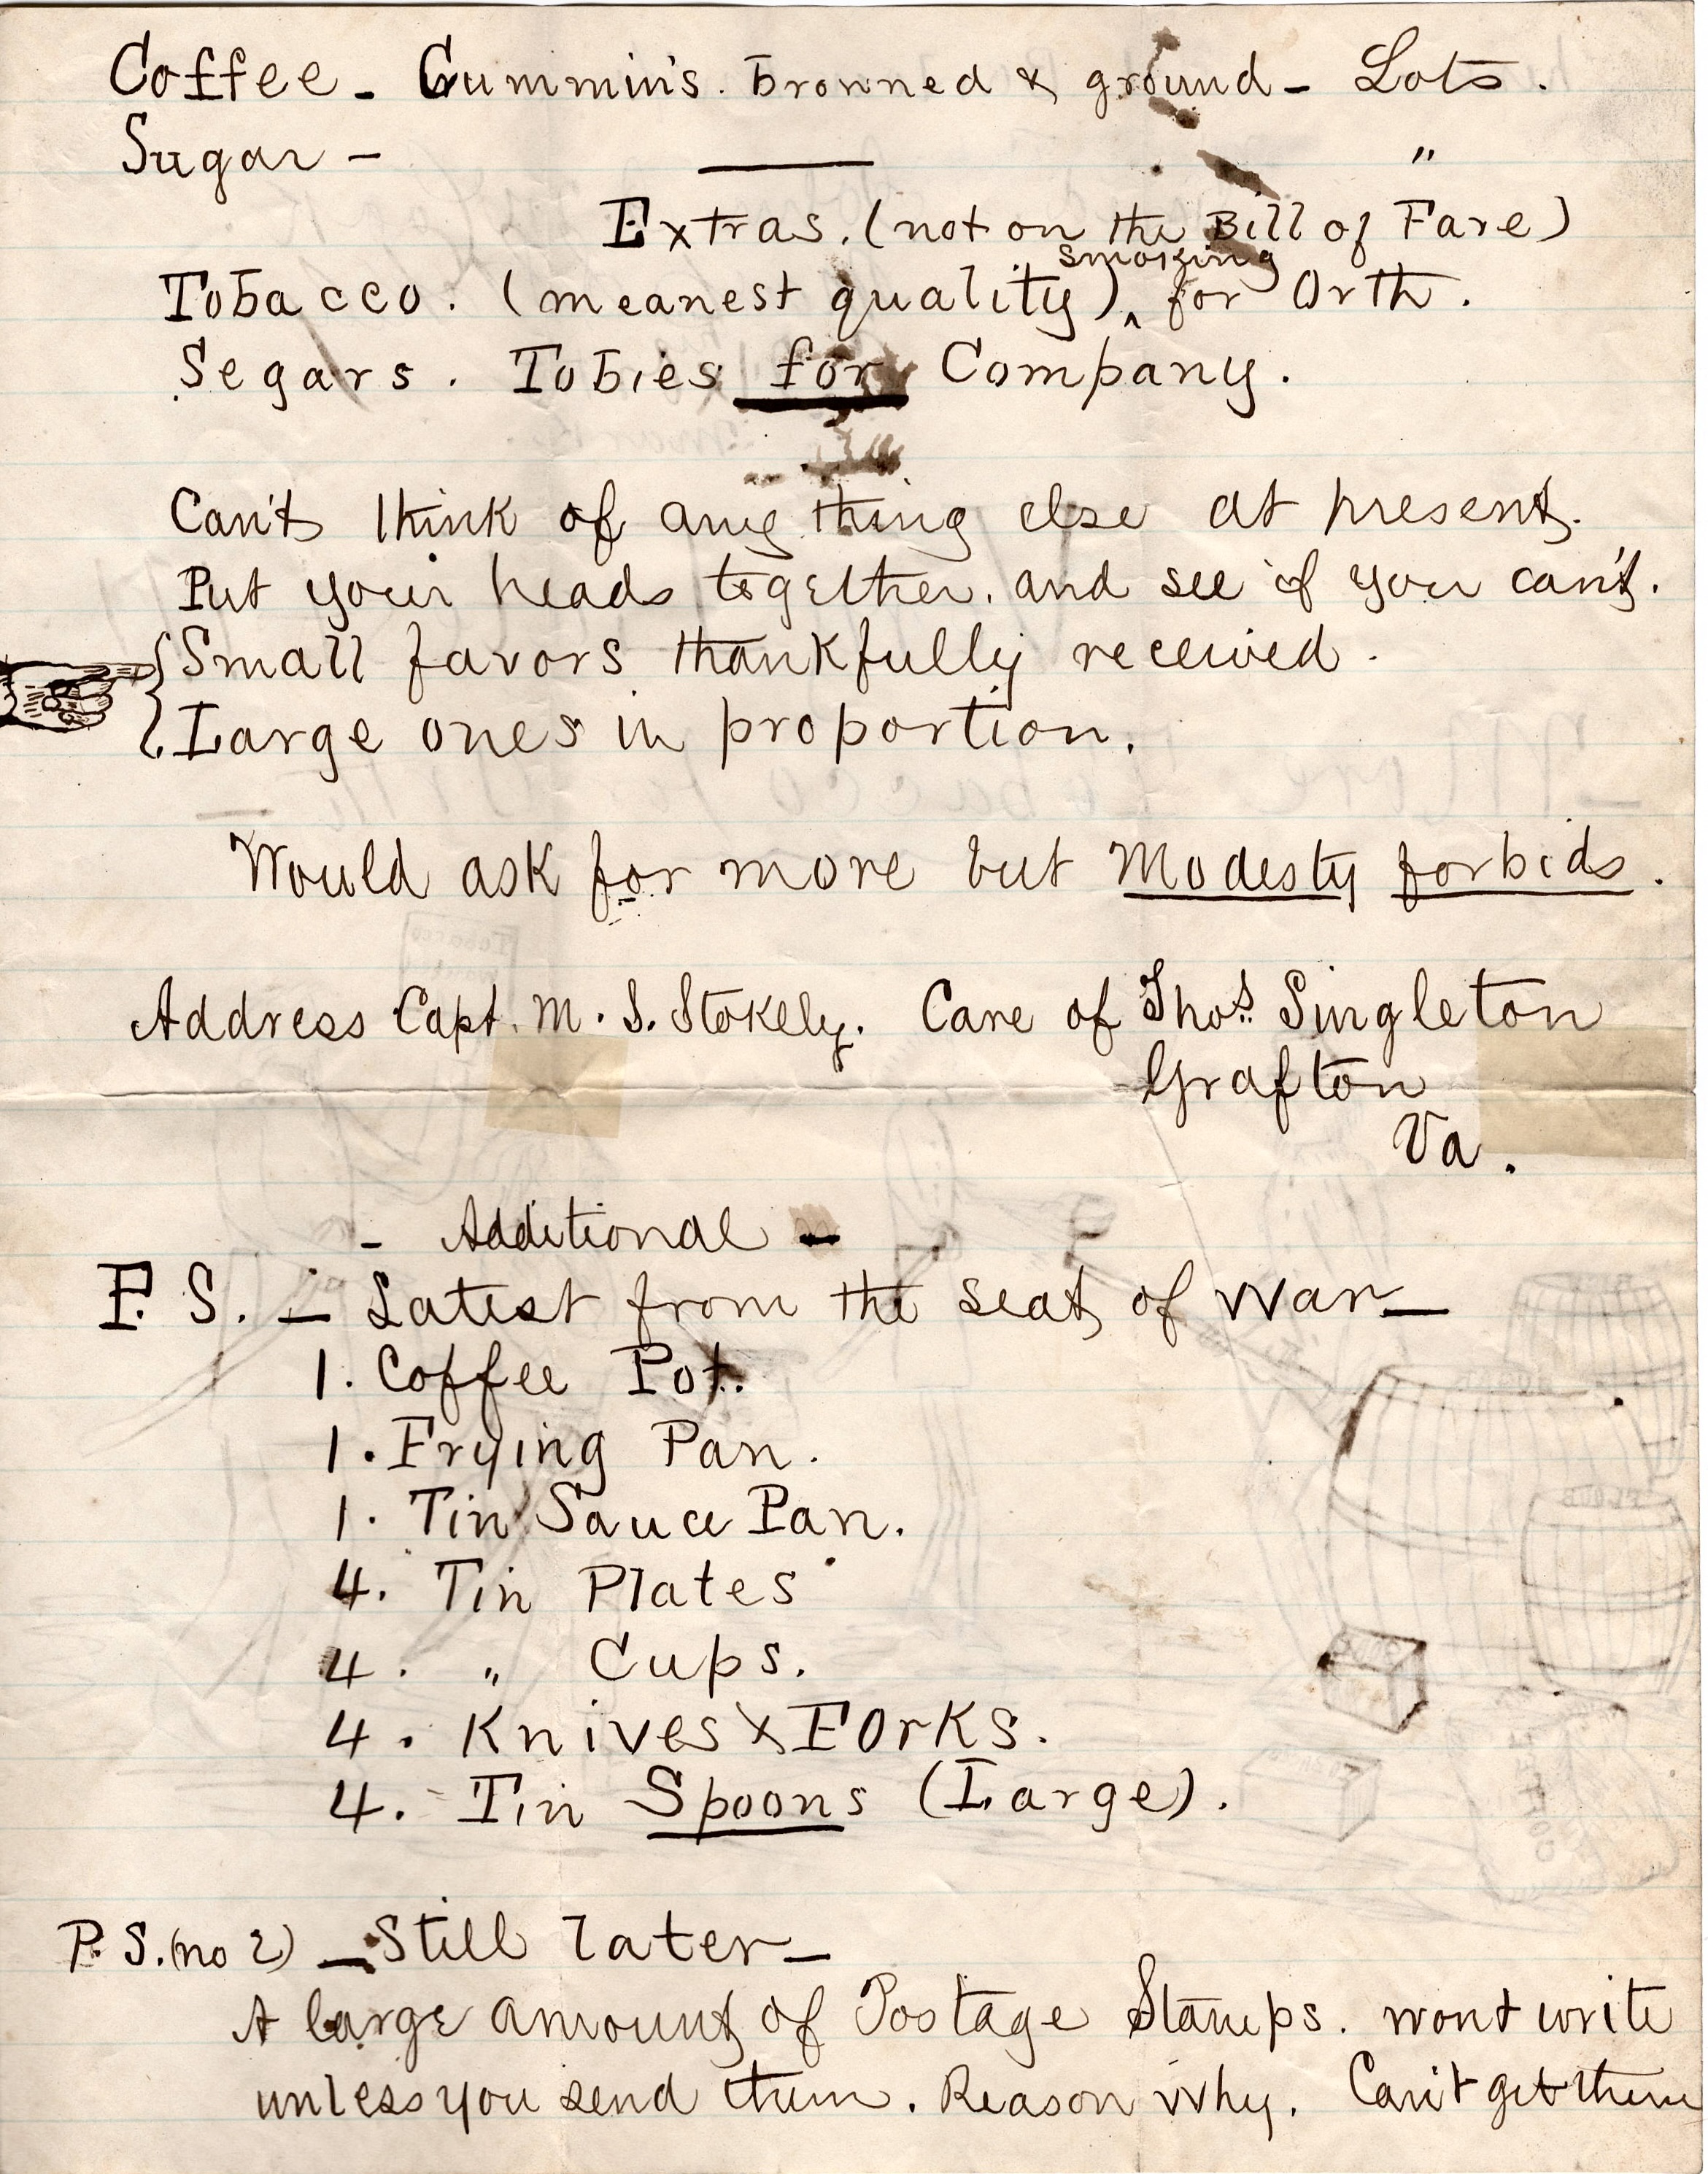 Coffee - Cummin's. browned & ground - Lots.
Sugar - —— "
Extras. (not on the Bill of Fare)
smoking
Tobacco. (meanest quality)‸ for Orth.
Segars. Tobies for Company.
Can't think of any thing else at present.
Put your heads together. and see if you can't.
Small favors thankfully received.
Large ones in proportion.
Would ask for more but Modesty forbids.
Address Capt. M. S. Stokely. Care of Thos. Singleton
Grafton
Va.
- Additional -
P. S. — Latest from the seat of War —
1. Coffee Pot.
1. Frying Pan.
1. Tin Sauce Pan.
4. Tin Plates
4. " Cups.
4. Knives & Forks.
4. Tin Spoons (Large).
P. S. (no 2) — Still later —
A large amount of Postage Stamps. wont write
unless you send them. Reason Why. Can't get them